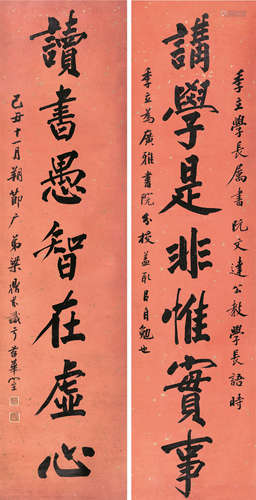 季立學長屬書阮文達公教學長語時
講學是非惟實事
季立為廣雅書院分校益取以自勉也
讀書愚智在虛心
己丑十一月朔節广弟梁鼎芬識于華室